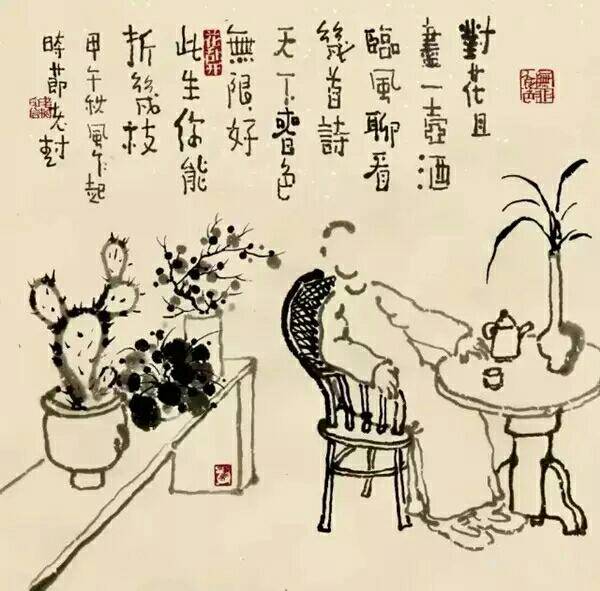 對花且
盡一壺酒
臨風聊看
幾首詩
天下春色
無限好
此生你能
折幾枝
甲午秋風乍起
時節老封